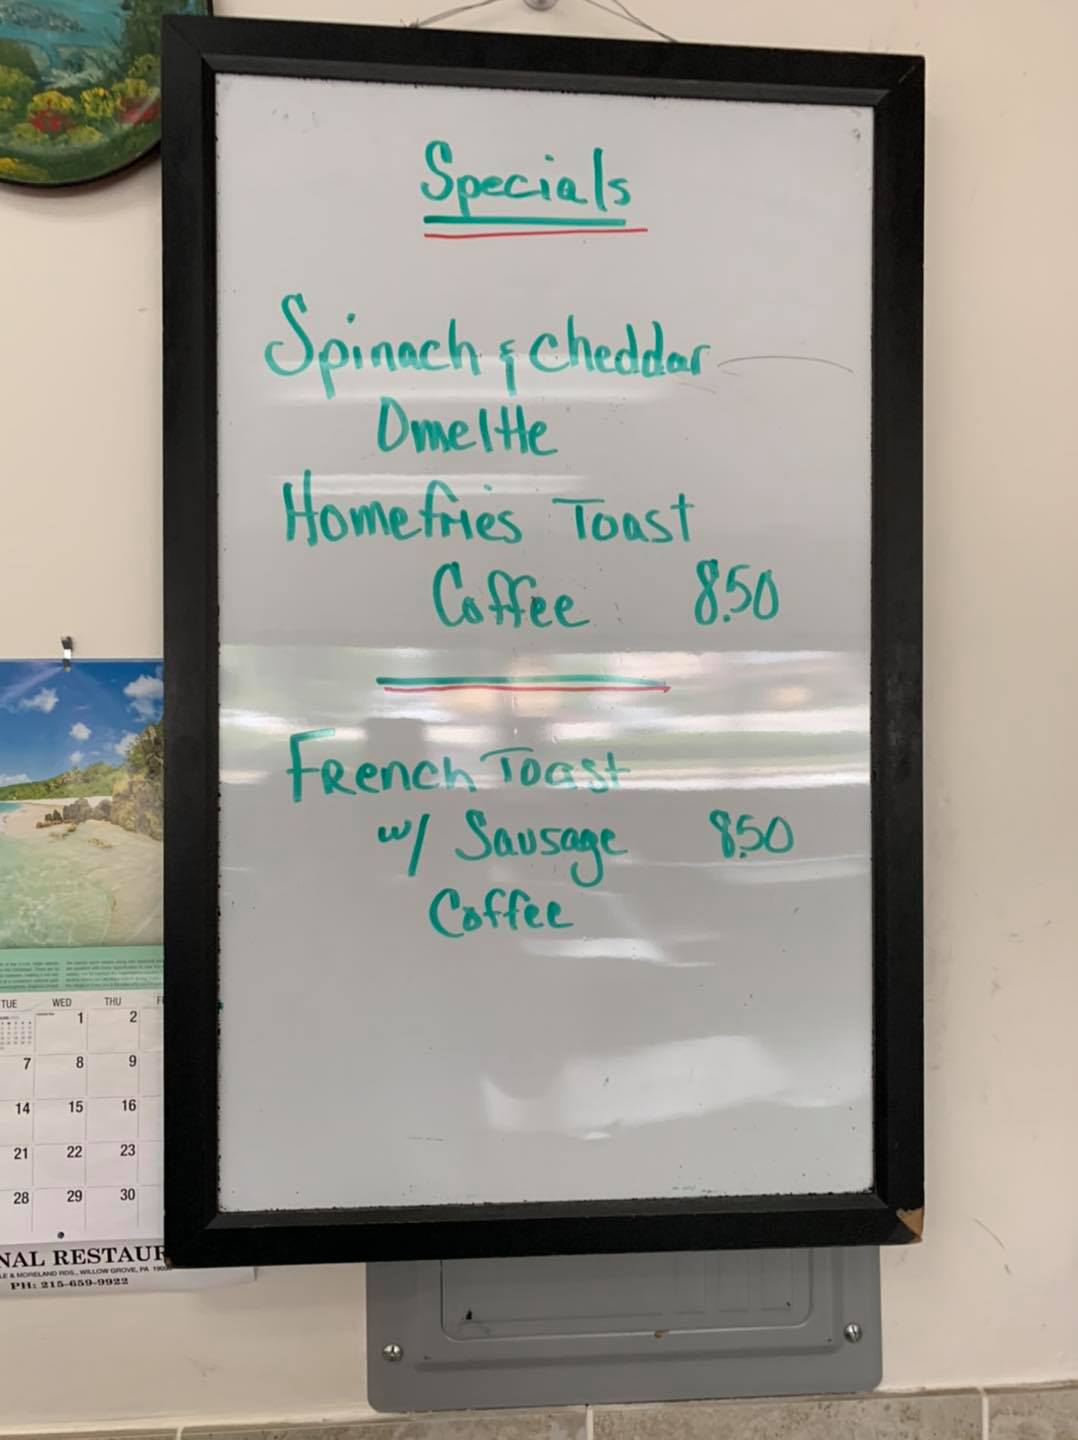 Specials
Spinach & cheddar
Omeltte
Homefries Toast
Coffee 8.50
French Toast
w/ Sausage 8.50
Coffee
TUE WED THU
1 2
7 8 9
14 15 16
21 22 23
28 29 30
NAL RESTAUR
LE & MORELAND RDS., WILLOW GROVE, PA 1909
PH: 215-659-9922